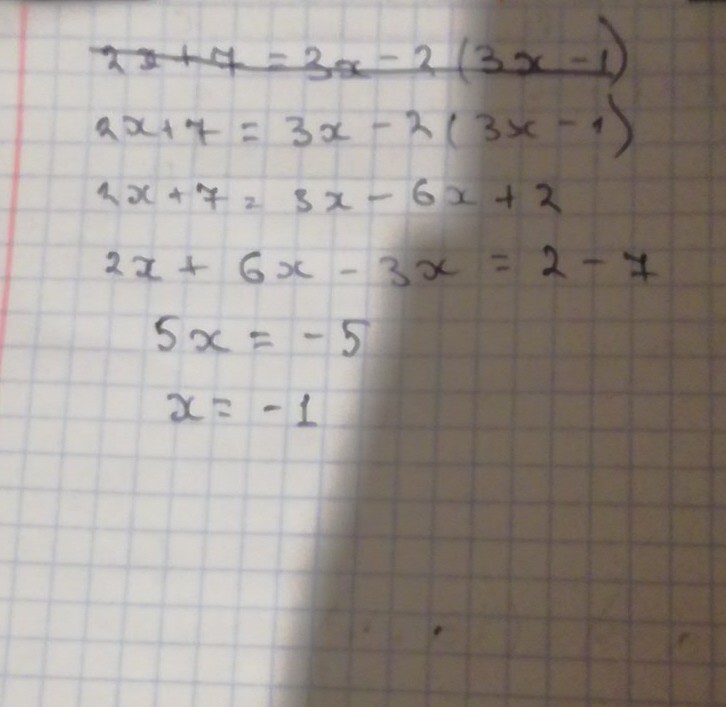 2x + 7 = 3x - 2 (3x - 1)
2x + 7 = 3x - 2 (3x - 1)
2x + 7 = 3x - 6x + 2
2x + 6x - 3x = 2 - 7
5x = - 5
x = - 1